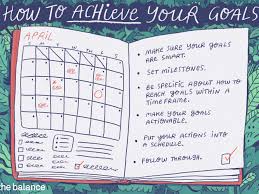 HOW TO ACHIEVE YOUR GOALS
APRIL
• MAKE SURE YOUR GOALS
ARE SMART.
• SET MILESTONES.
• BE SPECIFIC ABOUT HOW TO
REACH GOALS WITHIN A
TIMEFRAME.
• MAKE YOUR GOALS
ACTIONABLE.
• PUT YOUR ACTIONS INTO
A SCHEDULE.
• FOLLOW THROUGH.
the balance